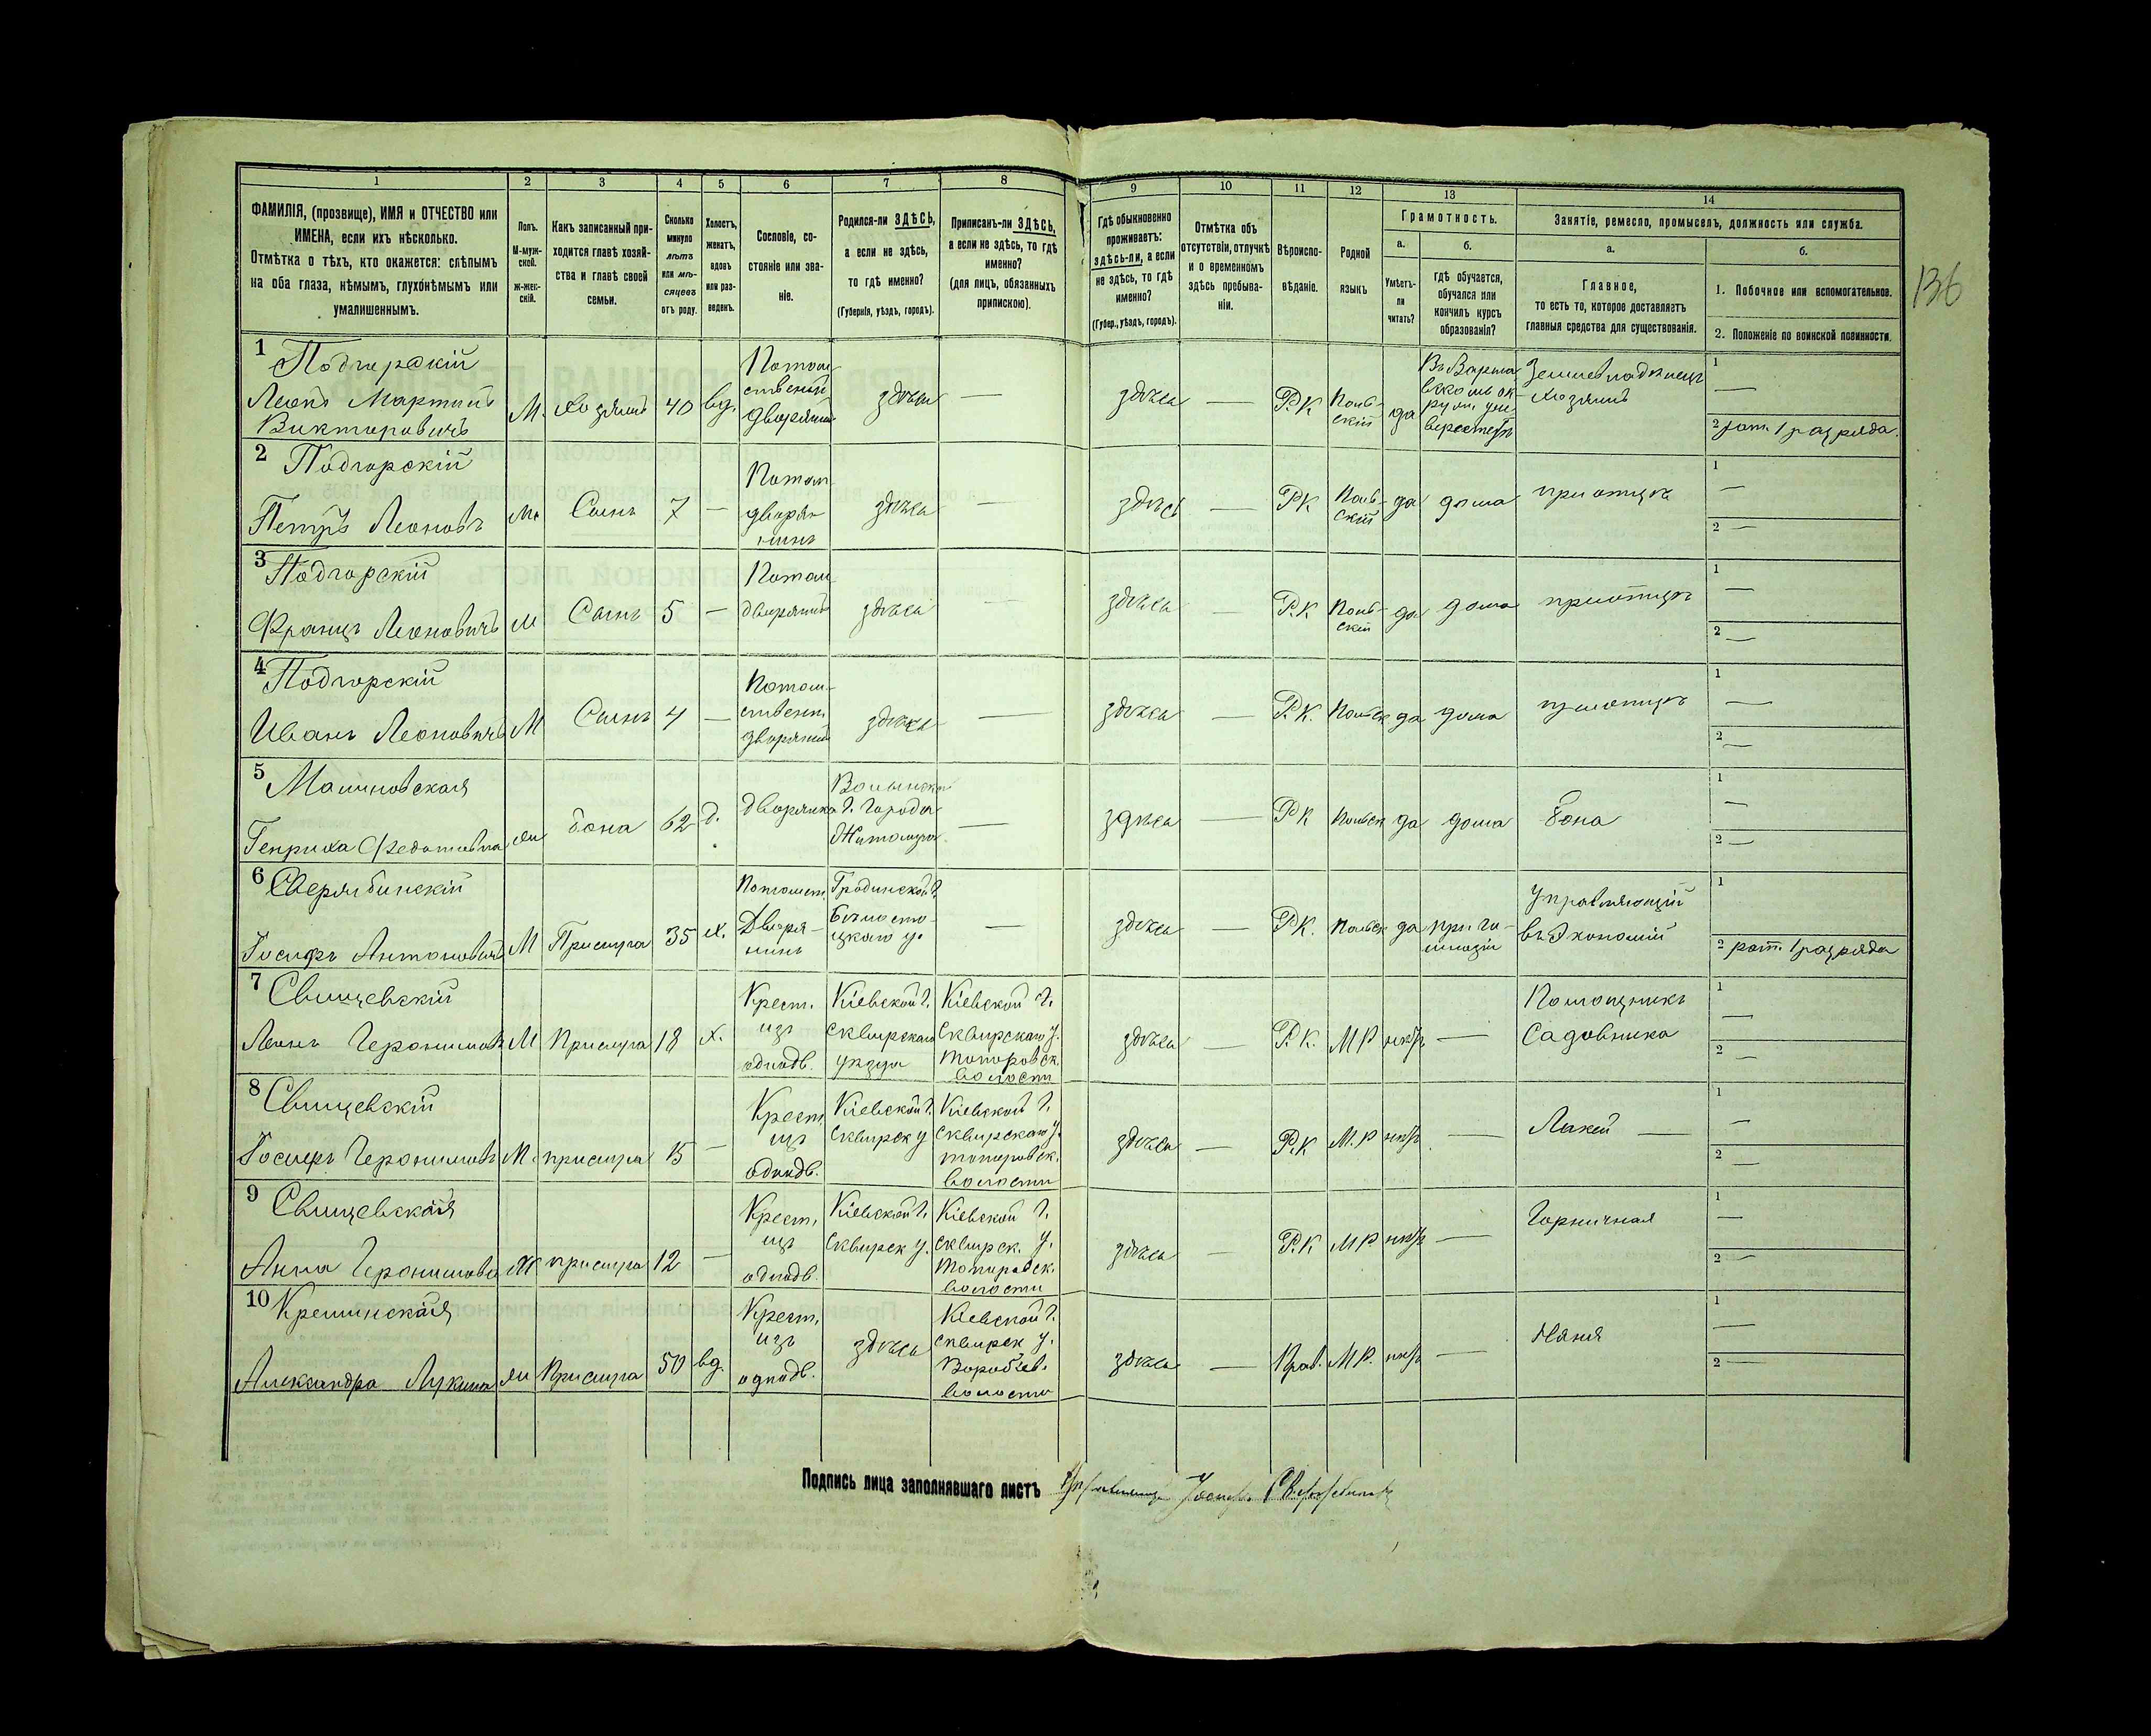 1 2 3 4 5 6 7 8 9 10 11 12 13 14
ФАМИЛІЯ, (прозвище), ИМЯ и ОТЧЕСТВО или
ИМЕНА, если ихъ нѣсколько.
Отмѣтка о тѣхъ, кто окажется: слѣпымъ
на оба глаза, нѣмымъ, глухонѣмымъ или
умалишеннымъ.
Полъ.
М-муж-
ской.
Ж-жен-
скій.
Какъ записанный при-
ходится главѣ хозяй-
ства и главѣ своей
семьи.
Сколько
минуло
лѣтъ
или мѣ-
сяцевъ
отъ роду.
Холостъ,
женатъ,
вдовъ
или раз-
веденъ.
Сословіе, со-
стояніе или зва-
ніе.
Родился-ли ЗДѢСЬ,
а если не здѣсь,
то гдѣ именно?
(Губернія, уѣздъ, городъ).
Приписанъ-ли ЗДѢСЬ,
а если не здѣсь, то гдѣ
именно?
(для лицъ, обязанныхъ
припискою).
Гдѣ обыкновенно
проживаетъ:
здѣсь-ли, а если
не здѣсь, то гдѣ
именно?
(Губер., уѣздъ, городъ).
Отмѣтка объ
отсутствіи, отлучкѣ
и о временномъ
здѣсь пребыва-
ніи.
Вѣроиспо-
вѣданіе.
Родной
языкъ
Грамотность.
а.
Умѣетъ-
ли
читать?
б.
гдѣ обучается,
обучался или
кончилъ курсъ
образованія?
Занятіе, ремесло, промыселъ, должность или служба.
а.
Главное,
то есть то, которое доставляетъ
главныя средства для существованія.
б.
1. Побочное или вспомогательное.
2. Положеніе по воинской повинности.
136
1 Подгорскій
Леонъ Мартинъ
Викторовичъ
М. хозяинъ 40 вд.
Потом
ственный
дворянинъ
здѣсь — здѣсь — Р.К Поль-
скій
да
Въ Варша
вскомъ ок
руж. уни
верситетѣ
Землевладѣлецъ
хозяинъ
1 —
2 рат. 1 разряда.
2 Подгорскій
Петръ Леоновъ
М. Сынъ 7 —
Потом
дворя-
нинъ
здѣсь — здѣсь — Р.К Поль-
скій
да дома при отцѣ
1 —
2 —
3 Подгорскій
Францъ Леоновичъ
М Сынъ 5 —
Потом
дворянинъ
здѣсь — здѣсь — Р.К Поль-
скій
да дома при отцѣ
1 —
2 —
4 Подгорскій
Иванъ Леоновичъ
М Сынъ 4 —
Потом-
ственн.
дворянин
здѣсь — здѣсь — Р.К. Польск да дома при отцѣ
1 —
2 —
5 Малиновская
Генриха
ж бона 62 д. дворянка
Волынск
г. города
Житомира
— здѣсь — Р.К Польск да дома бона
1 —
2 —
6
Іосифъ Антоновичъ
М Прислуга 35 х.
Потомст.
Дворя-
нинъ
Гродинской г.
Бѣлосто-
цкаго у.
— здѣсь — Р.К. Польск да
при ги-
мназіи
Управляющій
въ Экономіи
1
2 рат. 1 разряда
7 Свищевскій
Леонъ Геронимовъ
М Прислуга 18 х.
Крест.
изъ
однодв.
Кіевской г.
Сквирскаго
уѣзда
Кіевской г.
Сквирскаго у.
Топоровск.
волости
здѣсь — Р.К. М Р нѣтъ —
Помощникъ
Садовника
1 —
2 —
8 Свищевскій
Іосифъ Геронимовъ
М. прислуга 15 —
Крест.
изъ
однодв.
Кіевской г.
Сквирск у
Кіевской г.
Сквирскаго у.
топоровск.
волости
здѣсь — Р.К М.Р нѣтъ — Лакей —
1 —
2 —
9 Свищевская
Анна Геронимова
Ж прислуга 12 —
Крест.
изъ
однодв.
Кіевской г.
Сквирск у.
Кіевской г.
Сквирск. у.
Топоровск.
волости
здѣсь — Р.К М Р нѣтъ — Горничная
1 —
2 —
10 Креминская
Александра Лукина
ж Прислуга 50 вд.
Крест.
изъ
однодв.
здѣсь
Кіевской г.
Сквирск у.
Воробіев.
волости
здѣсь — Прав. М Р. нѣтъ — Няня
1 —
2 —
Подпись лица заполнявшаго листъ Управляющій Іосифъ